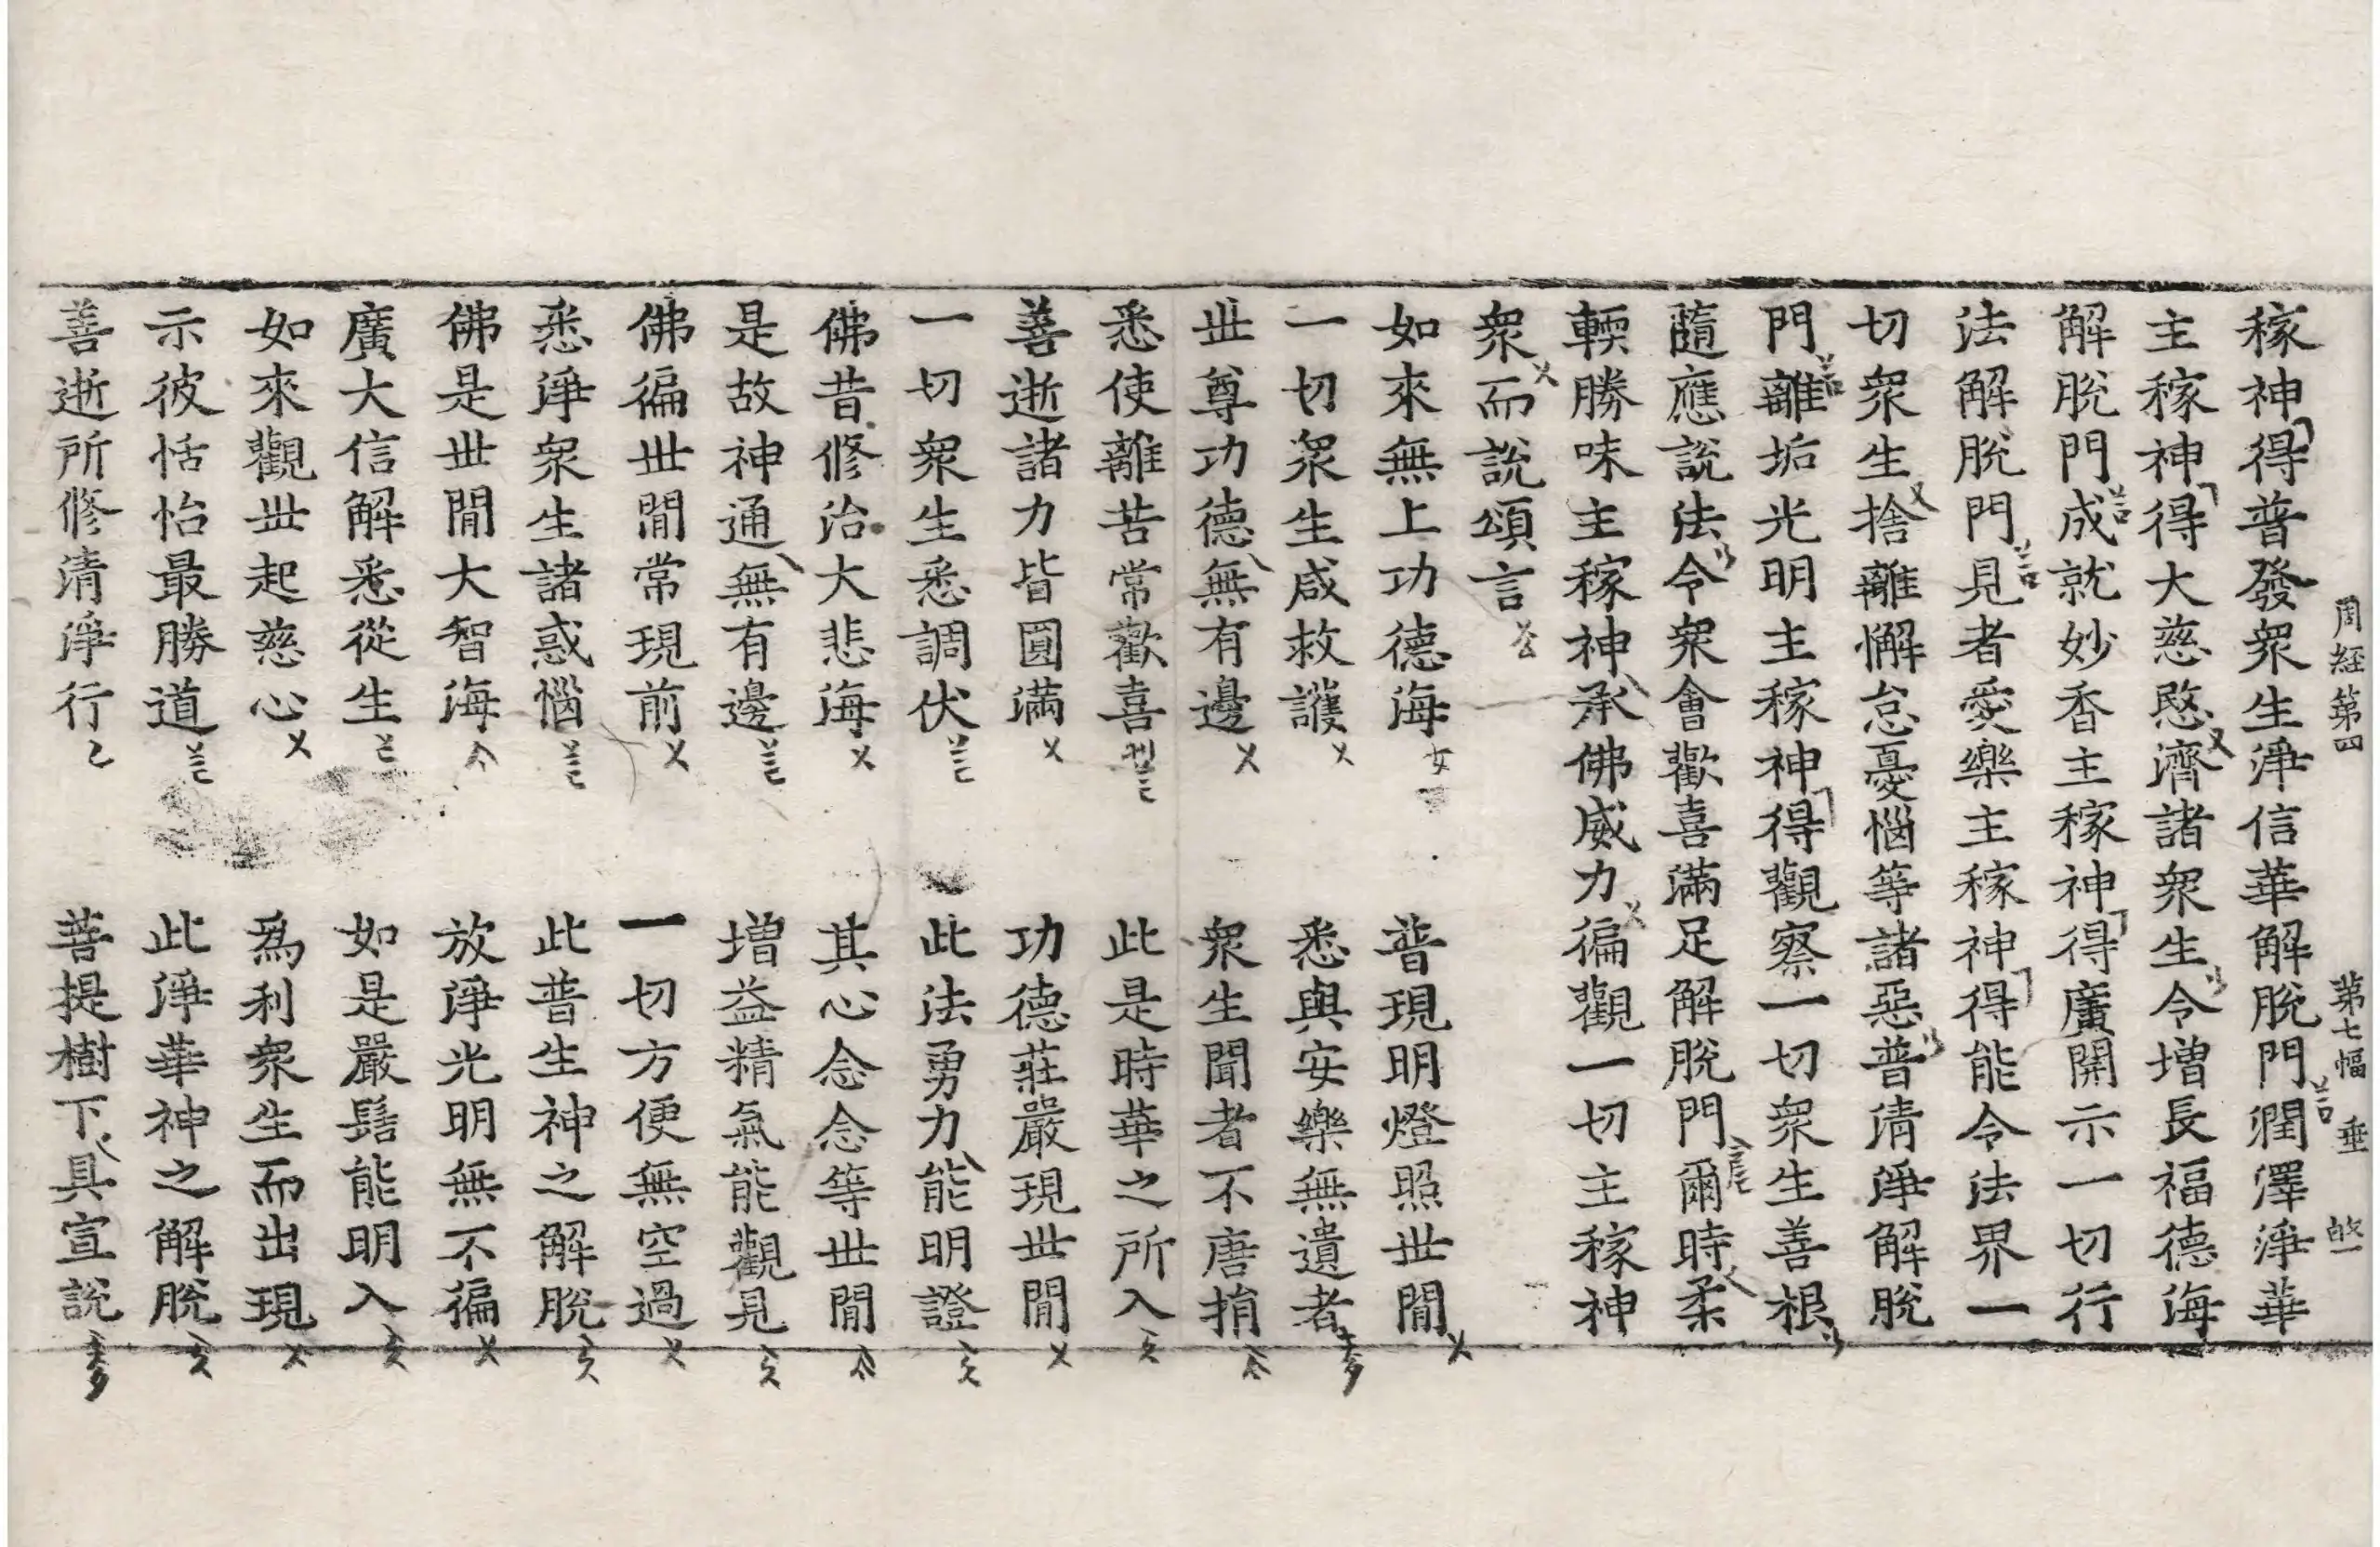 周経第四 第七幅 垂
稼神得普發衆生淨信華解脫門潤澤淨華
主稼神得大慈愍濟諸衆生令增長福德海
解脫門成就妙香主稼神得廣開示一切行
法解脫門見者愛樂主稼神得能令法界一
切衆生捨離懈怠憂惱等諸惡普清淨解脫
門離垢光明主稼神得觀察一切衆生善根
隨應說法令衆會歡喜滿足解脫門爾時柔
輭勝味主稼神承佛威力徧觀一切主稼神
衆而說頌言
如來無上功德海 普現明燈照世間
一切衆生咸救護 悉與安樂無遺者
世尊功德無有邊 衆生聞者不唐捐
悉使離苦常歡喜 此是時華之所入
善逝諸力皆圓滿 功德莊嚴現世間
一切衆生悉調伏 此法勇力能明證
佛昔修治大悲海 其心念念等世間
是故神通無有邊 增益精氣能觀見
佛徧世間常現前 一切方便無空過
悉淨衆生諸惑惱 此普生神之解脫
佛是世間大智海 放淨光明無不徧
廣大信解悉從生 如是嚴髻能明入
如來觀世起慈心 爲利衆生而出現
示彼恬怡最勝道 此淨華神之解脫
善逝所修清淨行 菩提樹下具宣說